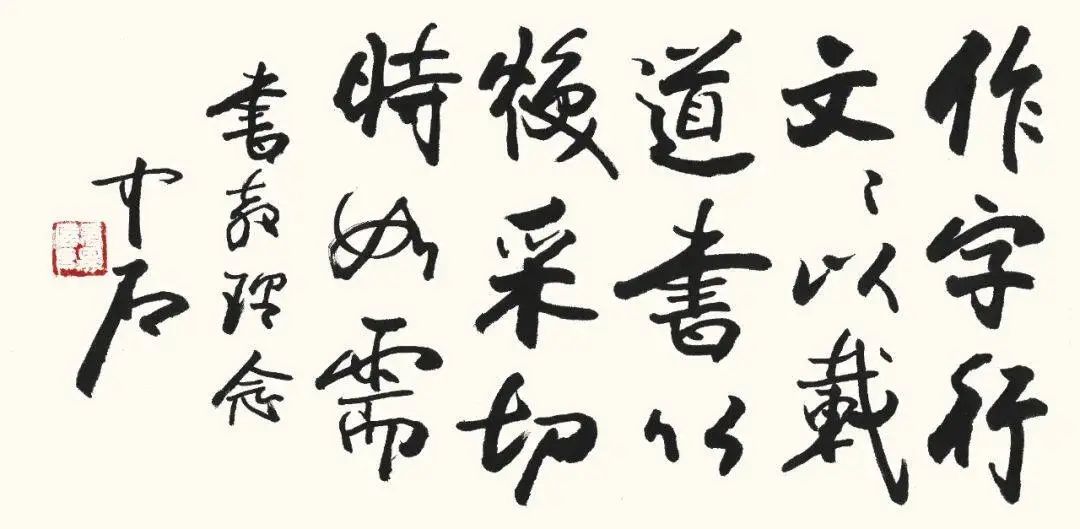 作字行
文〻以載
道書以
煥采切
時如需
書教理念
中石